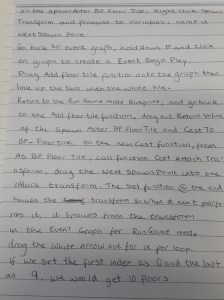 on the spawn Actor BP Floor Tile, Right click Spawn
Transform and promote to variables. name it
Next Spawn Point.
Go back to event graph, hold down P and click
on graph to create a Event Begin Play.
Drag Add floor tile function onto the graph then
line up the two with the white tile.
Return to the Run Game Mode Blueprint, and go back
to the Add floor tile function, drag out Return Value
of the Spawn Actor BP Floor Tile and Cast TO
BP-Floor Tile. on the new Cast function, from
As BP Floor Tile, call function Get Attach Tra-
nsform, drag the Next Spawn Point into the
attach transform. The Set function @ the end
Saves the transform so when it next perfo-
rms it, it spawns from the transform
in the Event Graph for Run Game Mode,
drag the white arrow out for a for loop.
if we set the first index as 0 and the last
as 9, we would get 10 floors